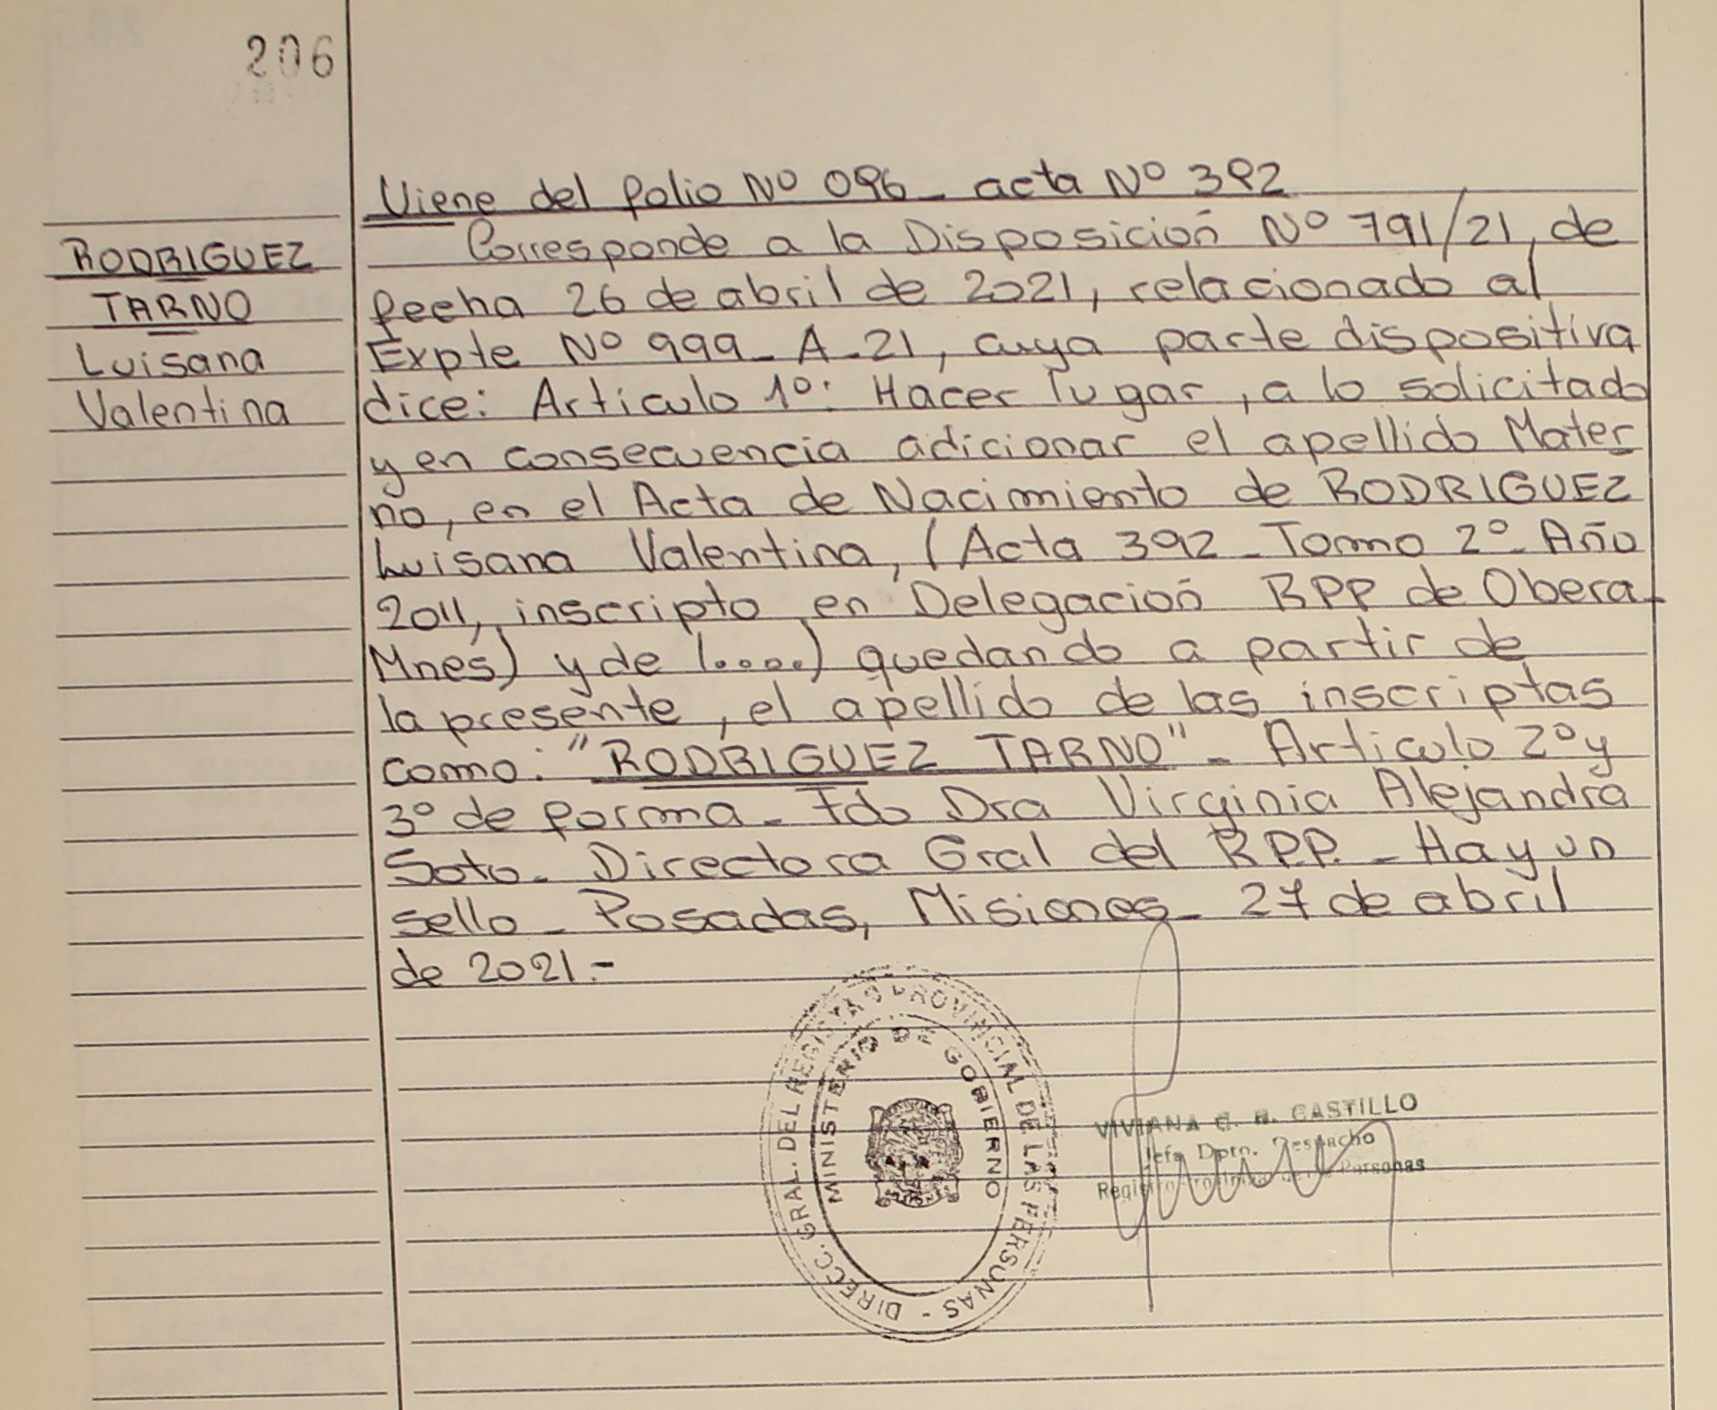 206
RODRIGUEZ
TARNO
Luisana
Valentina
Viene del folio Nº 096 - acta Nº 392
Corresponde a la Disposición Nº 791/21, de
fecha 26 de abril de 2021, relacionado al
Expte Nº 999 - A - 21, cuya parte dispositiva
dice: Articulo 1º: Hacer lugar, a lo solicitado
y en consecuencia adicionar el apellido Mater
no, en el Acta de Nacimiento de RODRIGUEZ
Luisana Valentina, (Acta 392 - Tomo 2º - Año
2011, inscripto en Delegación RPP de Obera -
Mnes) y de (.....) quedando a partir de
la presente, el apellido de las inscriptas
como: "RODRIGUEZ TARNO" - Articulo 2º y
3º de forma - Fdo Dra Virginia Alejandra
Soto - Directora Gral del RPP. - Hay un
sello - Posadas, Misiones - 27 de abril
de 2021.-
DIRECC. GRAL. DEL REGISTRO PROVINCIAL DE LAS PERSONAS -
MINISTERIO DE GOBIERNO
VIVIANA CASTILLO
Jefe Dpto. Despacho
Registro Provincial de las Personas